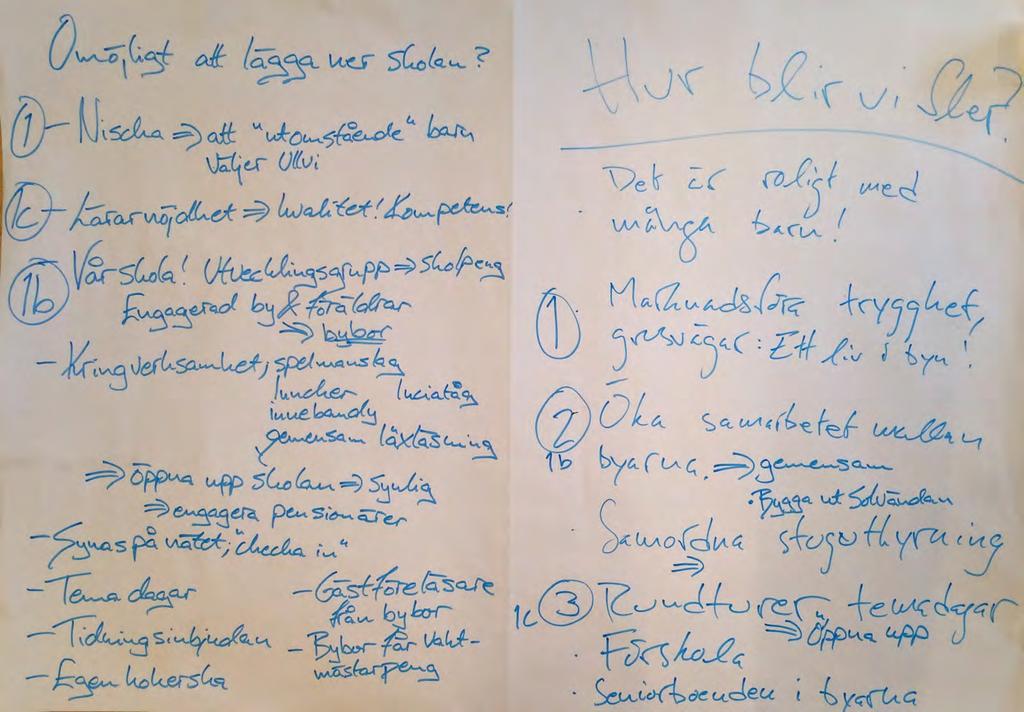 Omöjligt att lägga ner skolan?
① – Nischa ⇒ att "utomstående" barn
väljer Ullvi
1c – Lärarnöjdhet ⇒ kvalitet! Kompetens!
1b Vår skola! Utvecklingsgrupp ⇒ skolpeng
Engagerad by & föräldrar
⇒ bybor
– Kringverksamhet; spelmanslag
luncher luciatåg
innebandy
gemensam läxläsning
⇒ öppna upp skolan ⇒ synlig
⇒ engagera pensionärer
– Synas på nätet; "checka in"
– Tema dagar
– Tidningsinbjudan
– Egen kokerska
– Gästföreläsare
från bybor
– Bybor får vakt-
mästarpeng
Hur blir vi fler?
· Det är roligt med
många barn!
① Marknadsföra trygghet,
grusvägar: Ett liv i byn!
② Öka samarbetet mellan
1b byarna. ⇒ gemensam
· Bygga ut Solvändan
· Samordna stuguthyrning
⇒
1c ③ Rundturer, temadagar
⇒ Öppna upp
· Förskola
· Seniorboenden i byarna